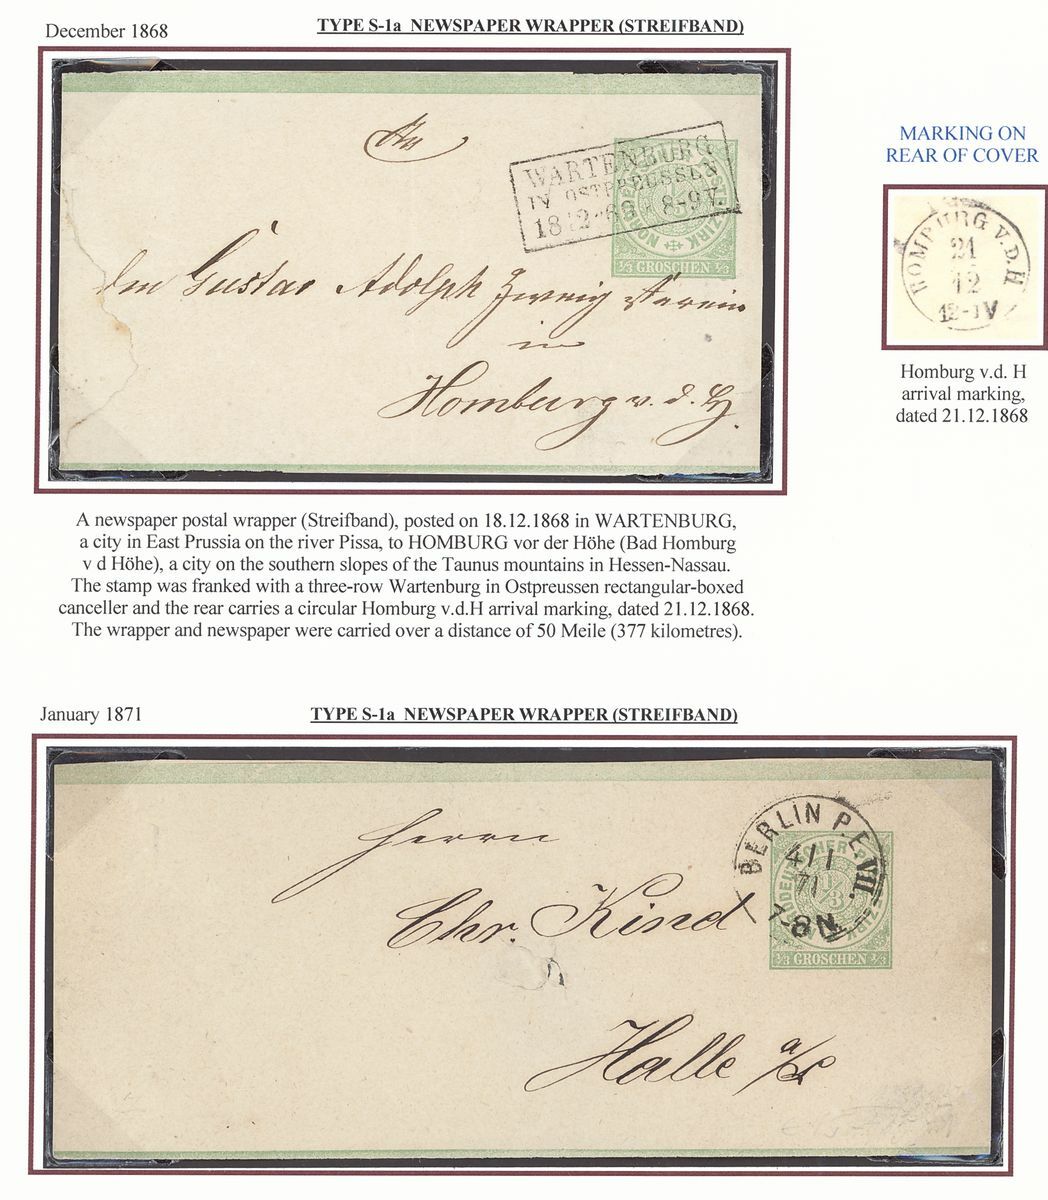 December 1868
TYPE S-1a NEWSPAPER WRAPPER (STREIFBAND)
MARKING ON
REAR OF COVER
An
WARTENBURG
IN OSTPREUSSEN
18 12 68 8-9V.
NORDDEUTSCHER POSTBEZIRK
1/3
1/3 GROSCHEN 1/3
den Gustav Adolph Zweig Verein
in
Homburg v. d. H.
HOMBURG V.D.H
21
12
12-1V
Homburg v.d. H
arrival marking,
dated 21.12.1868
A newspaper postal wrapper (Streifband), posted on 18.12.1868 in WARTENBURG,
a city in East Prussia on the river Pissa, to HOMBURG vor der Höhe (Bad Homburg
v d Höhe), a city on the southern slopes of the Taunus mountains in Hessen-Nassau.
The stamp was franked with a three-row Wartenburg in Ostpreussen rectangular-boxed
canceller and the rear carries a circular Homburg v.d.H arrival marking, dated 21.12.1868.
The wrapper and newspaper were carried over a distance of 50 Meile (377 kilometres).
January 1871
TYPE S-1a NEWSPAPER WRAPPER (STREIFBAND)
Herrn
BERLIN P.E. VII.
4/1
71
7-8N.
NORDDEUTSCHER POSTBEZIRK
1/3
1/3 GROSCHEN 1/3
Chr. Kind
Halle a/S